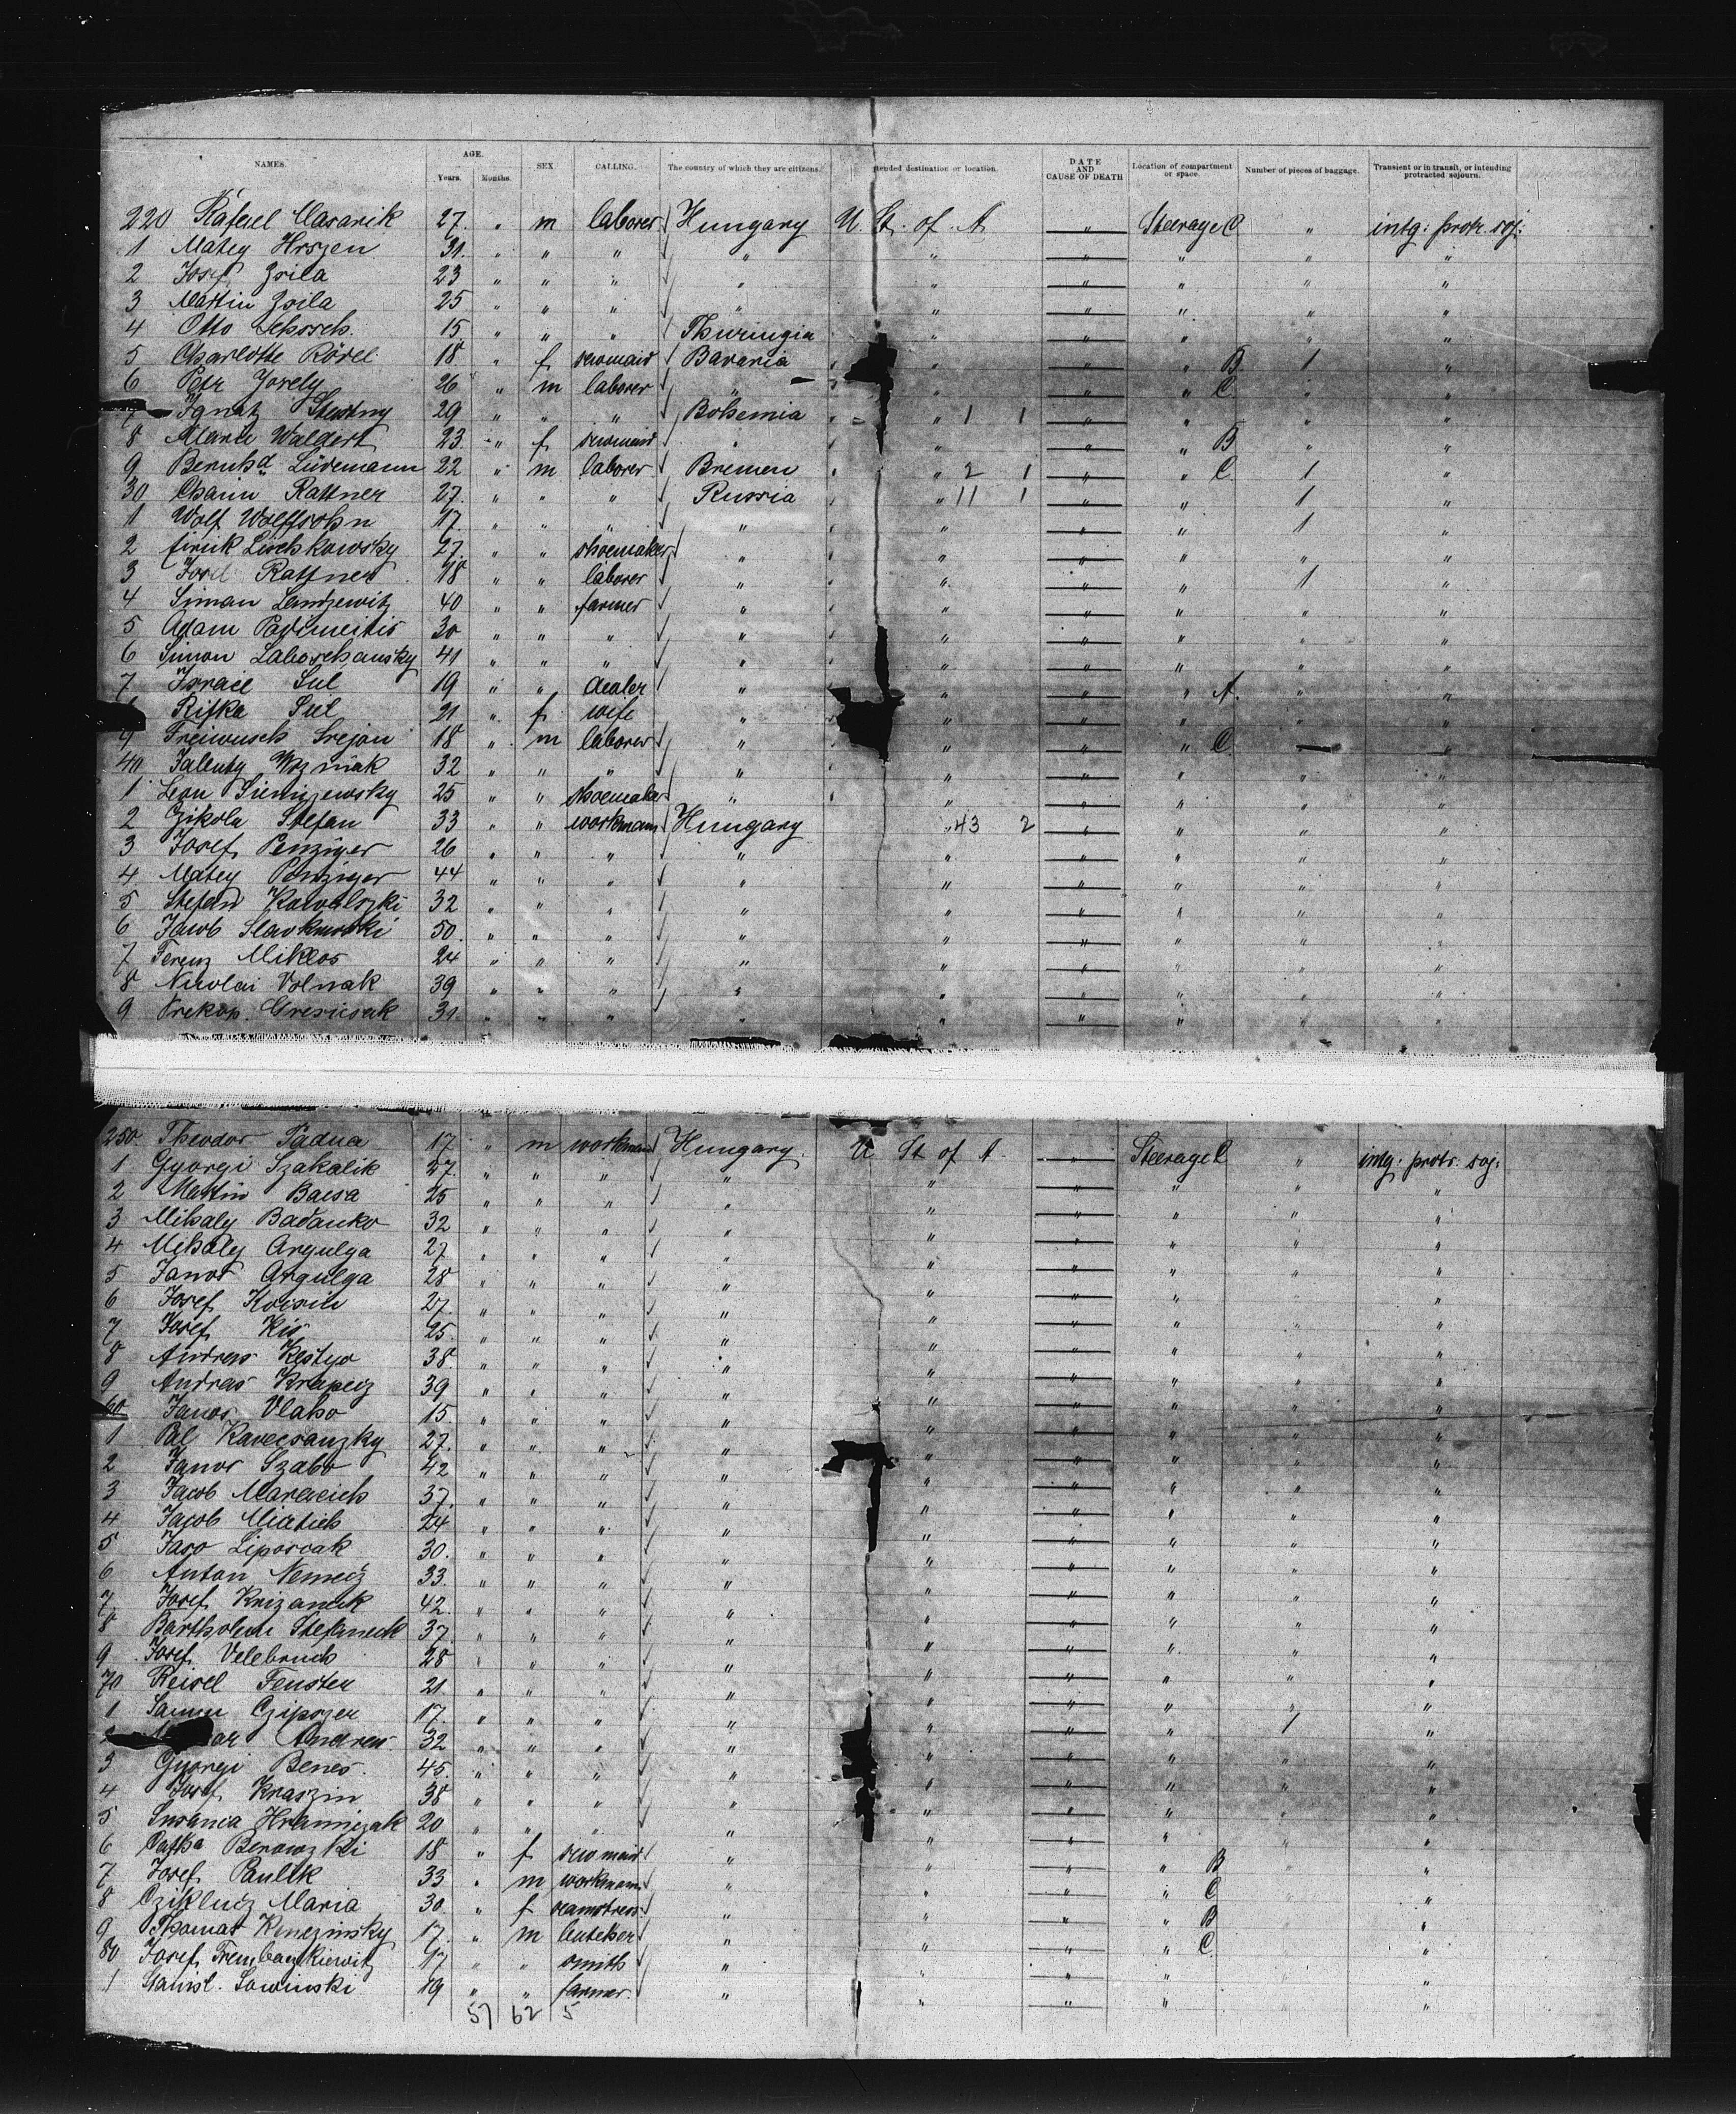 NAMES. AGE. Years. Months. SEX CALLING. The country of which they are citizens. tended destination or location. DATE AND CAUSE OF DEATH Location of compartment or space. Number of pieces of baggage. Transient or in transit, or intending protracted sojourn.
220 Rafael Masarik 27. " m laborer Hungary U. St. of A " Steerage C " intg: protr. soj:
1 Matey Hrszen 31. " " " " " " " " "
2 Josef Zsila 23 " " " " " " " " "
3 Martin Zsila 25 " " " " " " " " "
4 Otto Schorch. 15 " " " Thuringia " " " " "
5 Charlotte Rödel 18 " f serwmaid Bavaria " " " B 1 "
6 Petr Josely 26 " m laborer " " " " C. " "
7 Ignatz Stastny 29 " " " Bohemia " 1 1 " " " "
8 Maria Waldert 23 " f serwmaid " " " " B " "
9 Bernhd Lüdemann 22 " m laborer Bremen " 2 1 " " C. 1 "
30 Chaim Rattner 27. " " " Russia " 11 1 " " 1 "
1 Wolf Wolffsohn 17. " " " " " " " 1 "
2 Lischkowsky 27. " " shoemaker " " " " " "
3 Josel Rattner 18 " " laborer " " " " 1 "
4 Siman 40 " " farmer " " " " " "
5 Adam 30 " " " " " " " " "
6 Simon Laboschansky 41 " " " " " " " " "
7 Israel Sul 19 " " dealer " " " " A. " "
Rifka Sul 21 " f wife " " " " " "
9 Srejan 18 " m laborer " " " " C. "
40 Wozniak 32 " " " " " " " " "
1 Leon 25 " " shoemaker " " " " " "
2 Zikola Stefan 33 " " workmann Hungary " 43 2 " " " "
3 Josef Penziger 26 " " " " " " " " "
4 Matey Penziger 44 " " " " " " " " "
5 Stefan Kowalszki 32 " " " " " " " " "
6 Jacob 50 " " " " " " " " "
7 Ferenz Miklos 24 " " " " " " " " "
8 Nicolai Volnak 39 " " " " " " " " "
9 Prekop. 31 " " " " " " " " "
250 Theodor Padua 17 " m workmann Hungary. U St of A. " Steerage C " intg: protr: soj:
1 Gyorgi Szakalik 27. " " " " " " " " "
2 Martin Bacsa 25 " " " " " " " " "
3 Mihaly Badanko 32 " " " " " " " " "
4 Mihaly Argulga 27 " " " " " " " " "
5 Janos Argulga 28 " " " " " " " " "
6 Josef 27. " " " " " " " " "
7 Josef Kis 25. " " " " " " " " "
8 Andras Kestyo 38. " " " " " " " " "
9 Andras 39 " " " " " " " " "
60 Janos Vlaho 15. " " " " " " " " "
1 Pal Kavecsanzky 27. " " " " " " " " "
2 Janos Szabo 42 " " " " " " " " "
3 Jacob 37. " " " " " " " " "
4 Jacob Miatich 24 " " " " " " " " "
5 Jaso Liposcak 30. " " " " " " " " "
6 Anton Nemecz 33. " " " " " " " " "
7 Josef Krizanick 42. " " " " " " " " "
8 Stefaneck 37. " " " " " " " " "
9 Josef 28 " " " " " " " " "
70 Reisel Fenster 21 " " " " " " " " "
1 17. " " " " " " " 1 "
2 Andras 32 " " " " " " " " "
3 Gyorgi Benes. 45. " " " " " " " " "
4 Josef Kraszin 38 " " " " " " " " "
5 Susania 20 " " " " " " " " "
6 18 " f serw maid " " " " B " "
7 Josef Paulik 33 " m workmann " " " " C " "
8 Maria 30. " f seamstress " " " " B "
9 Thomas 17. " m butcher " " " " C "
80 Josef 17 " " smith " " " " "
1 Stanisl. Sawinski 19 " " farmer. " " " " "
57 62 5